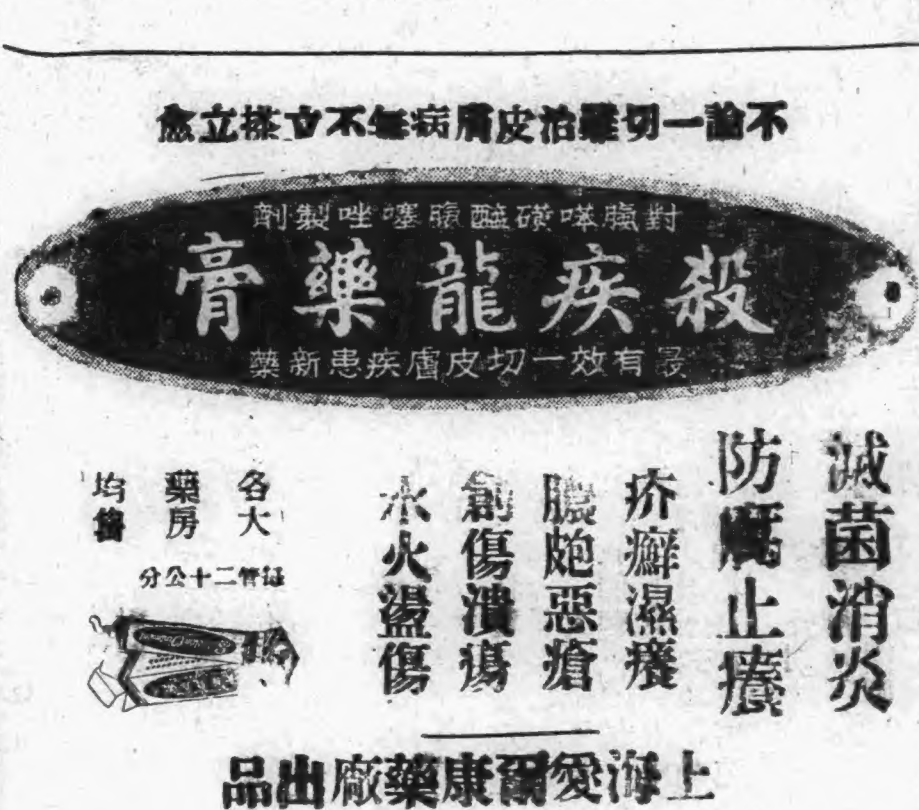 不論一切難治皮膚病無不立搽立愈
對胸苯磺醯胸噻唑製劑
殺疾龍藥膏
最有效一切皮膚疾患新藥
滅菌消炎
防腐止癢
疥癬濕癢
膿皰惡瘡
創傷潰瘍
水火盪傷
各大
藥房
均售
每管二十公分
上海愛爾康藥廠出品